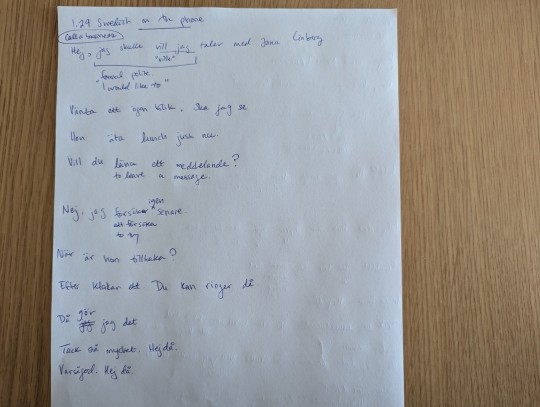 1.29 Swedish on the phone
Call a business
Hej, jag skulle vill jag talar med Jana
"ville"
"formal polite
I would like to"
Vänta ett ögon blick. Ska jag se
Hon äta lunch just nu.
Vill du läna ett meddelande?
to leave a message.
Nej, jag försöker igen senare.
att försöka
to try
När är hon tillbaka?
Efter klockar ett. Du kan ringer då
Då gör jag det
Tack så mycket. Hej då.
Varsågod. Hej då.